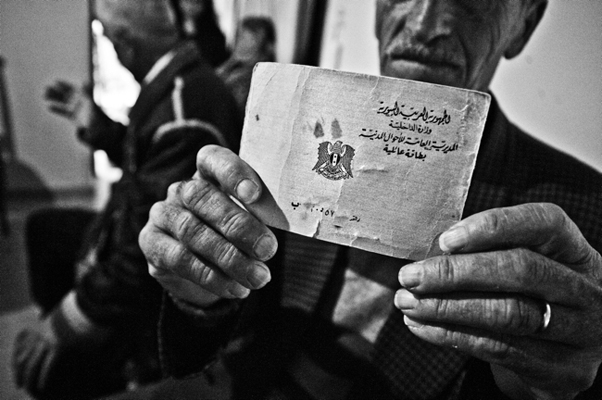 الجمهورية العربية السورية
وزارة الداخلية
المديرية العامة للأحوال المدنية
بطاقة عائلية